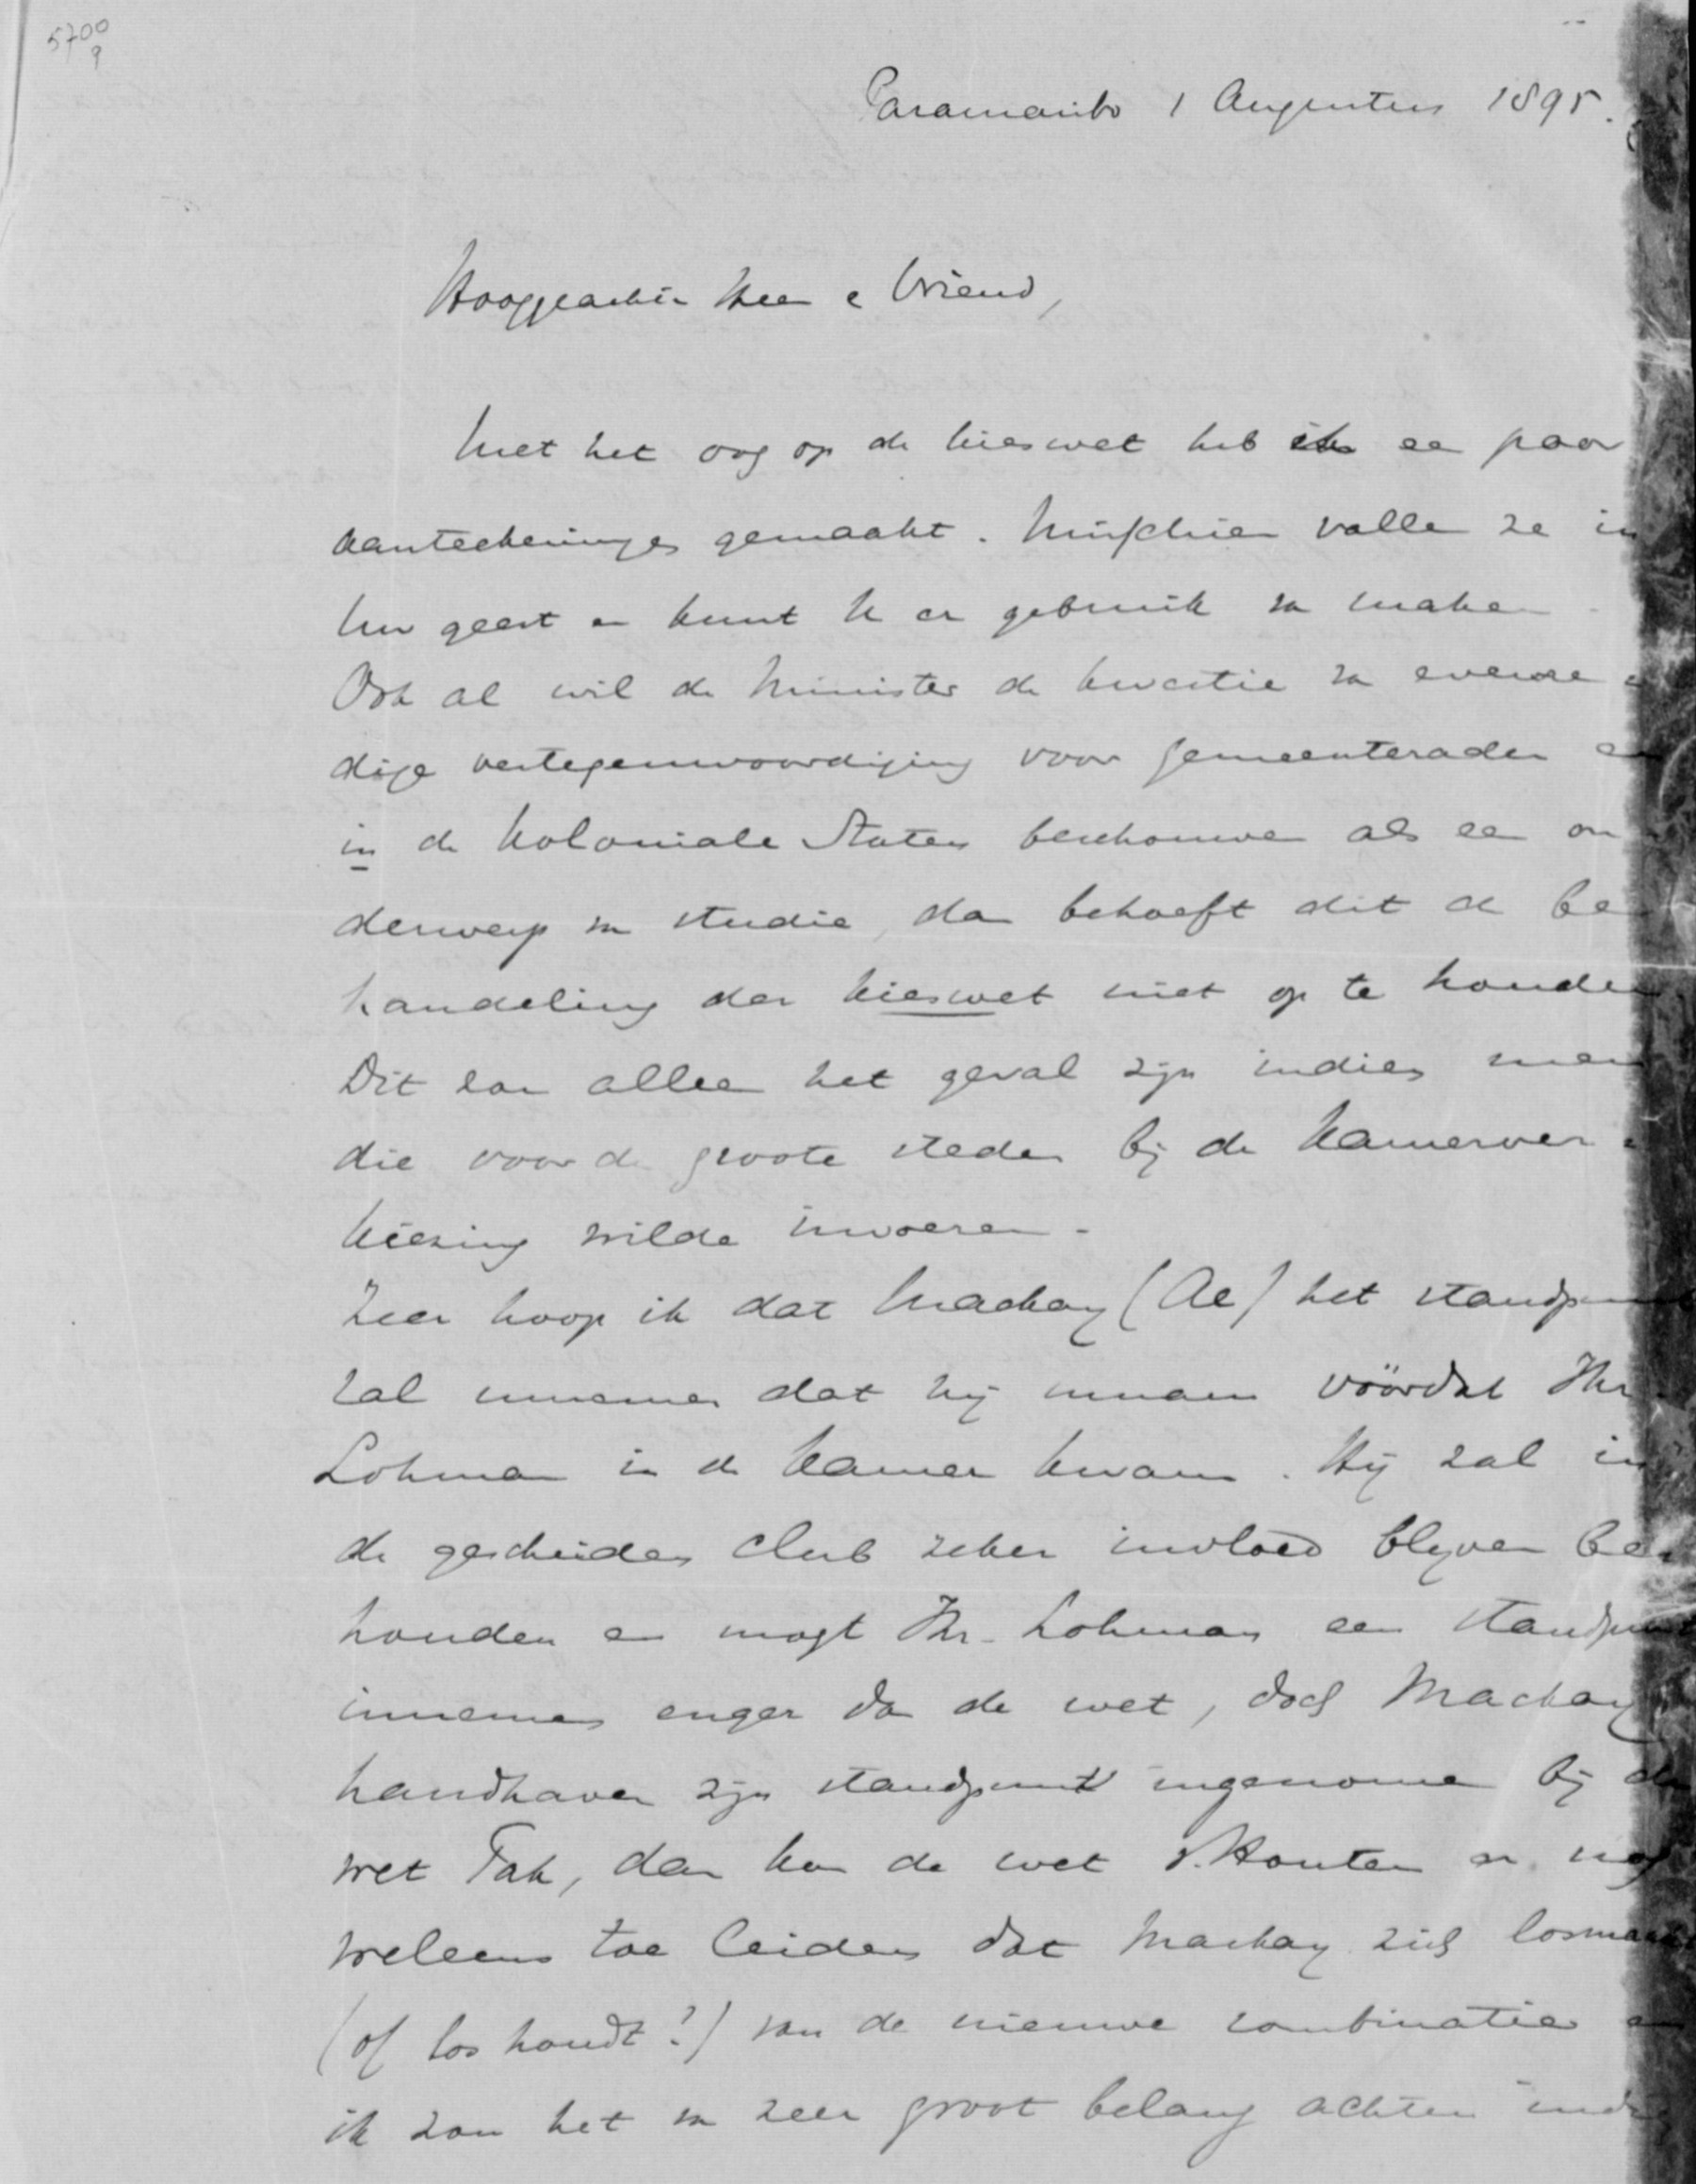 5700
9
Paramaribo 1 Augustus 1895.
Hooggeachte Heer e Vriend,
Met het oog op de kieswet heb ik een paar
aanteekeningen gemaakt. Misschien vallen ze in
Uw geest en kunt U er gebruik van maken
Ook al wil de Minister de kwestie van evenre
dige vertegenwoordiging voor gemeenteraden en
in de Koloniale Staten beschouwen als een on
derwerp van studie, dan behoeft dit de be
handeling der kieswet niet op te houden
Dit zou alleen het geval zijn indien men
die voor de groote steden bij de Kamerver
kiezing wilde invoeren.
Zeer hoop ik dat Mackay (Ae) het standpunt
zal innemen dat hij innam vóórdat Jhr
Lohman in de Kamer kwam. Hij zal in
de gescheiden club zeker invloed blijven be
houden en mogt Jhr. Lohman een standpunt
innemen enger dan de wet, doch Mackay
handhaven zijn standpunt ingenomen bij de
wet Tak, dan kan de wet v. Houten er nog
weleens toe leiden dat Mackay zich losmaakt
(of los houdt?) van de nieuwe combinatie en
ik zou het van zeer groot belang achten indien